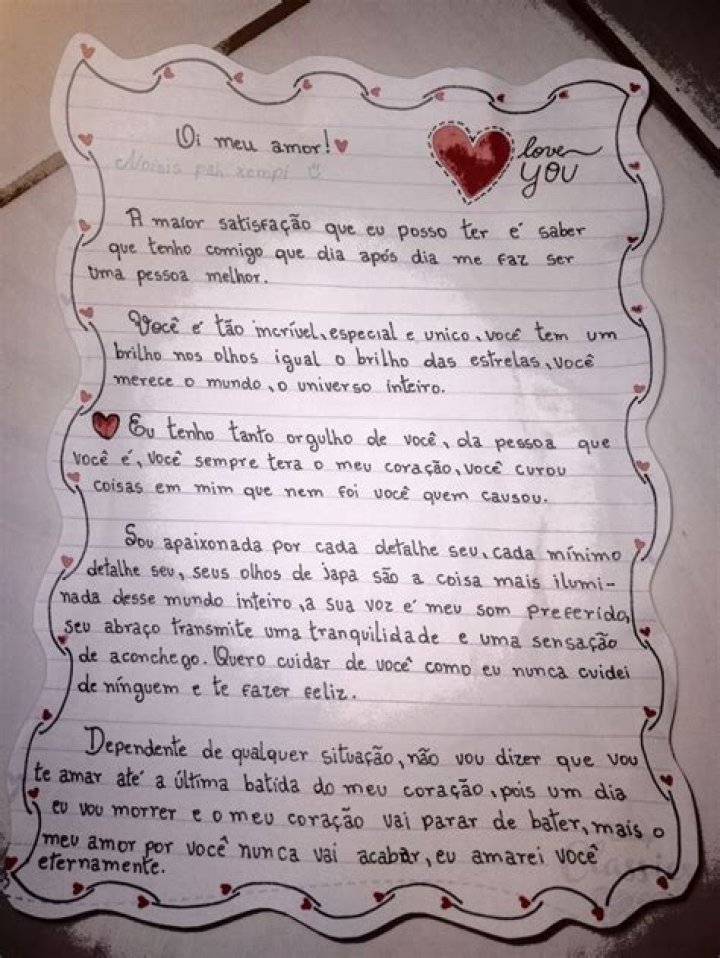 Oi meu amor!
love
YOU
Noisis pah xempi
A maior satisfação que eu posso ter é saber
que tenho comigo que dia após dia me faz ser
uma pessoa melhor.
Você é tão incrível, especial e unico, você tem um
brilho nos olhos igual o brilho das estrelas, você
merece o mundo, o universo inteiro.
Eu tenho tanto orgulho de você, da pessoa que
você é, você sempre tera o meu coração, você curou
coisas em mim que nem foi você quem causou.
Sou apaixonada por cada detalhe seu, cada mínimo
detalhe seu, seus olhos de japa são a coisa mais ilumi-
nada desse mundo inteiro, a sua voz é meu som preferido,
seu abraço transmite uma tranquilidade e uma sensação
de aconchego. Quero cuidar de você como eu nunca cuidei
de nínguem e te fazer feliz.
Dependente de qualquer situação, não vou dizer que vou
te amar até a última batida do meu coração, pois um dia
eu vou morrer e o meu coração vai parar de bater, mais o
meu amor por você nunca vai acabar, eu amarei você
eternamente.